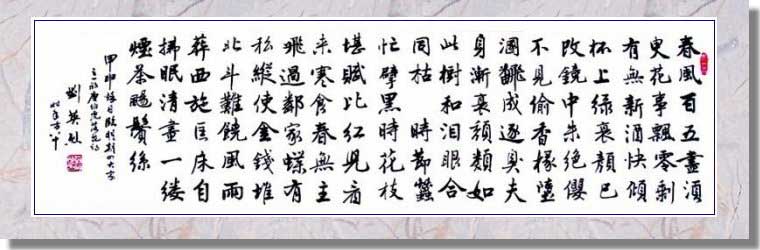 春風百五盡須
臾花事飄零剩
有無新酒快傾
杯上綠衰顏已
改鏡中朱絕纓
不見偷香椽墮
溷翻成逐臭夫
身漸衰頹類如
此樹和淚眼合
同枯 時節蠶
忙擘黑時花枝
堪賦比紅兒看
來寒食春無主
飛過鄰家蝶有
私縱使金錢堆
北斗難饒風雨
葬西施匡床自
拂眠清晝一縷
煙茶颺鬢絲
甲申
劉英